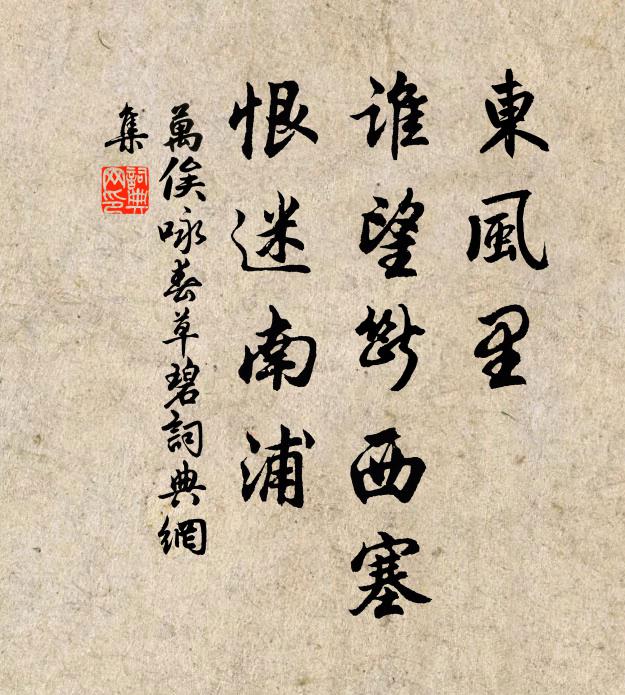 東風里
誰望斷西塞
恨迷南浦
萬俟咏春草碧詞典網
集
詞典
网印